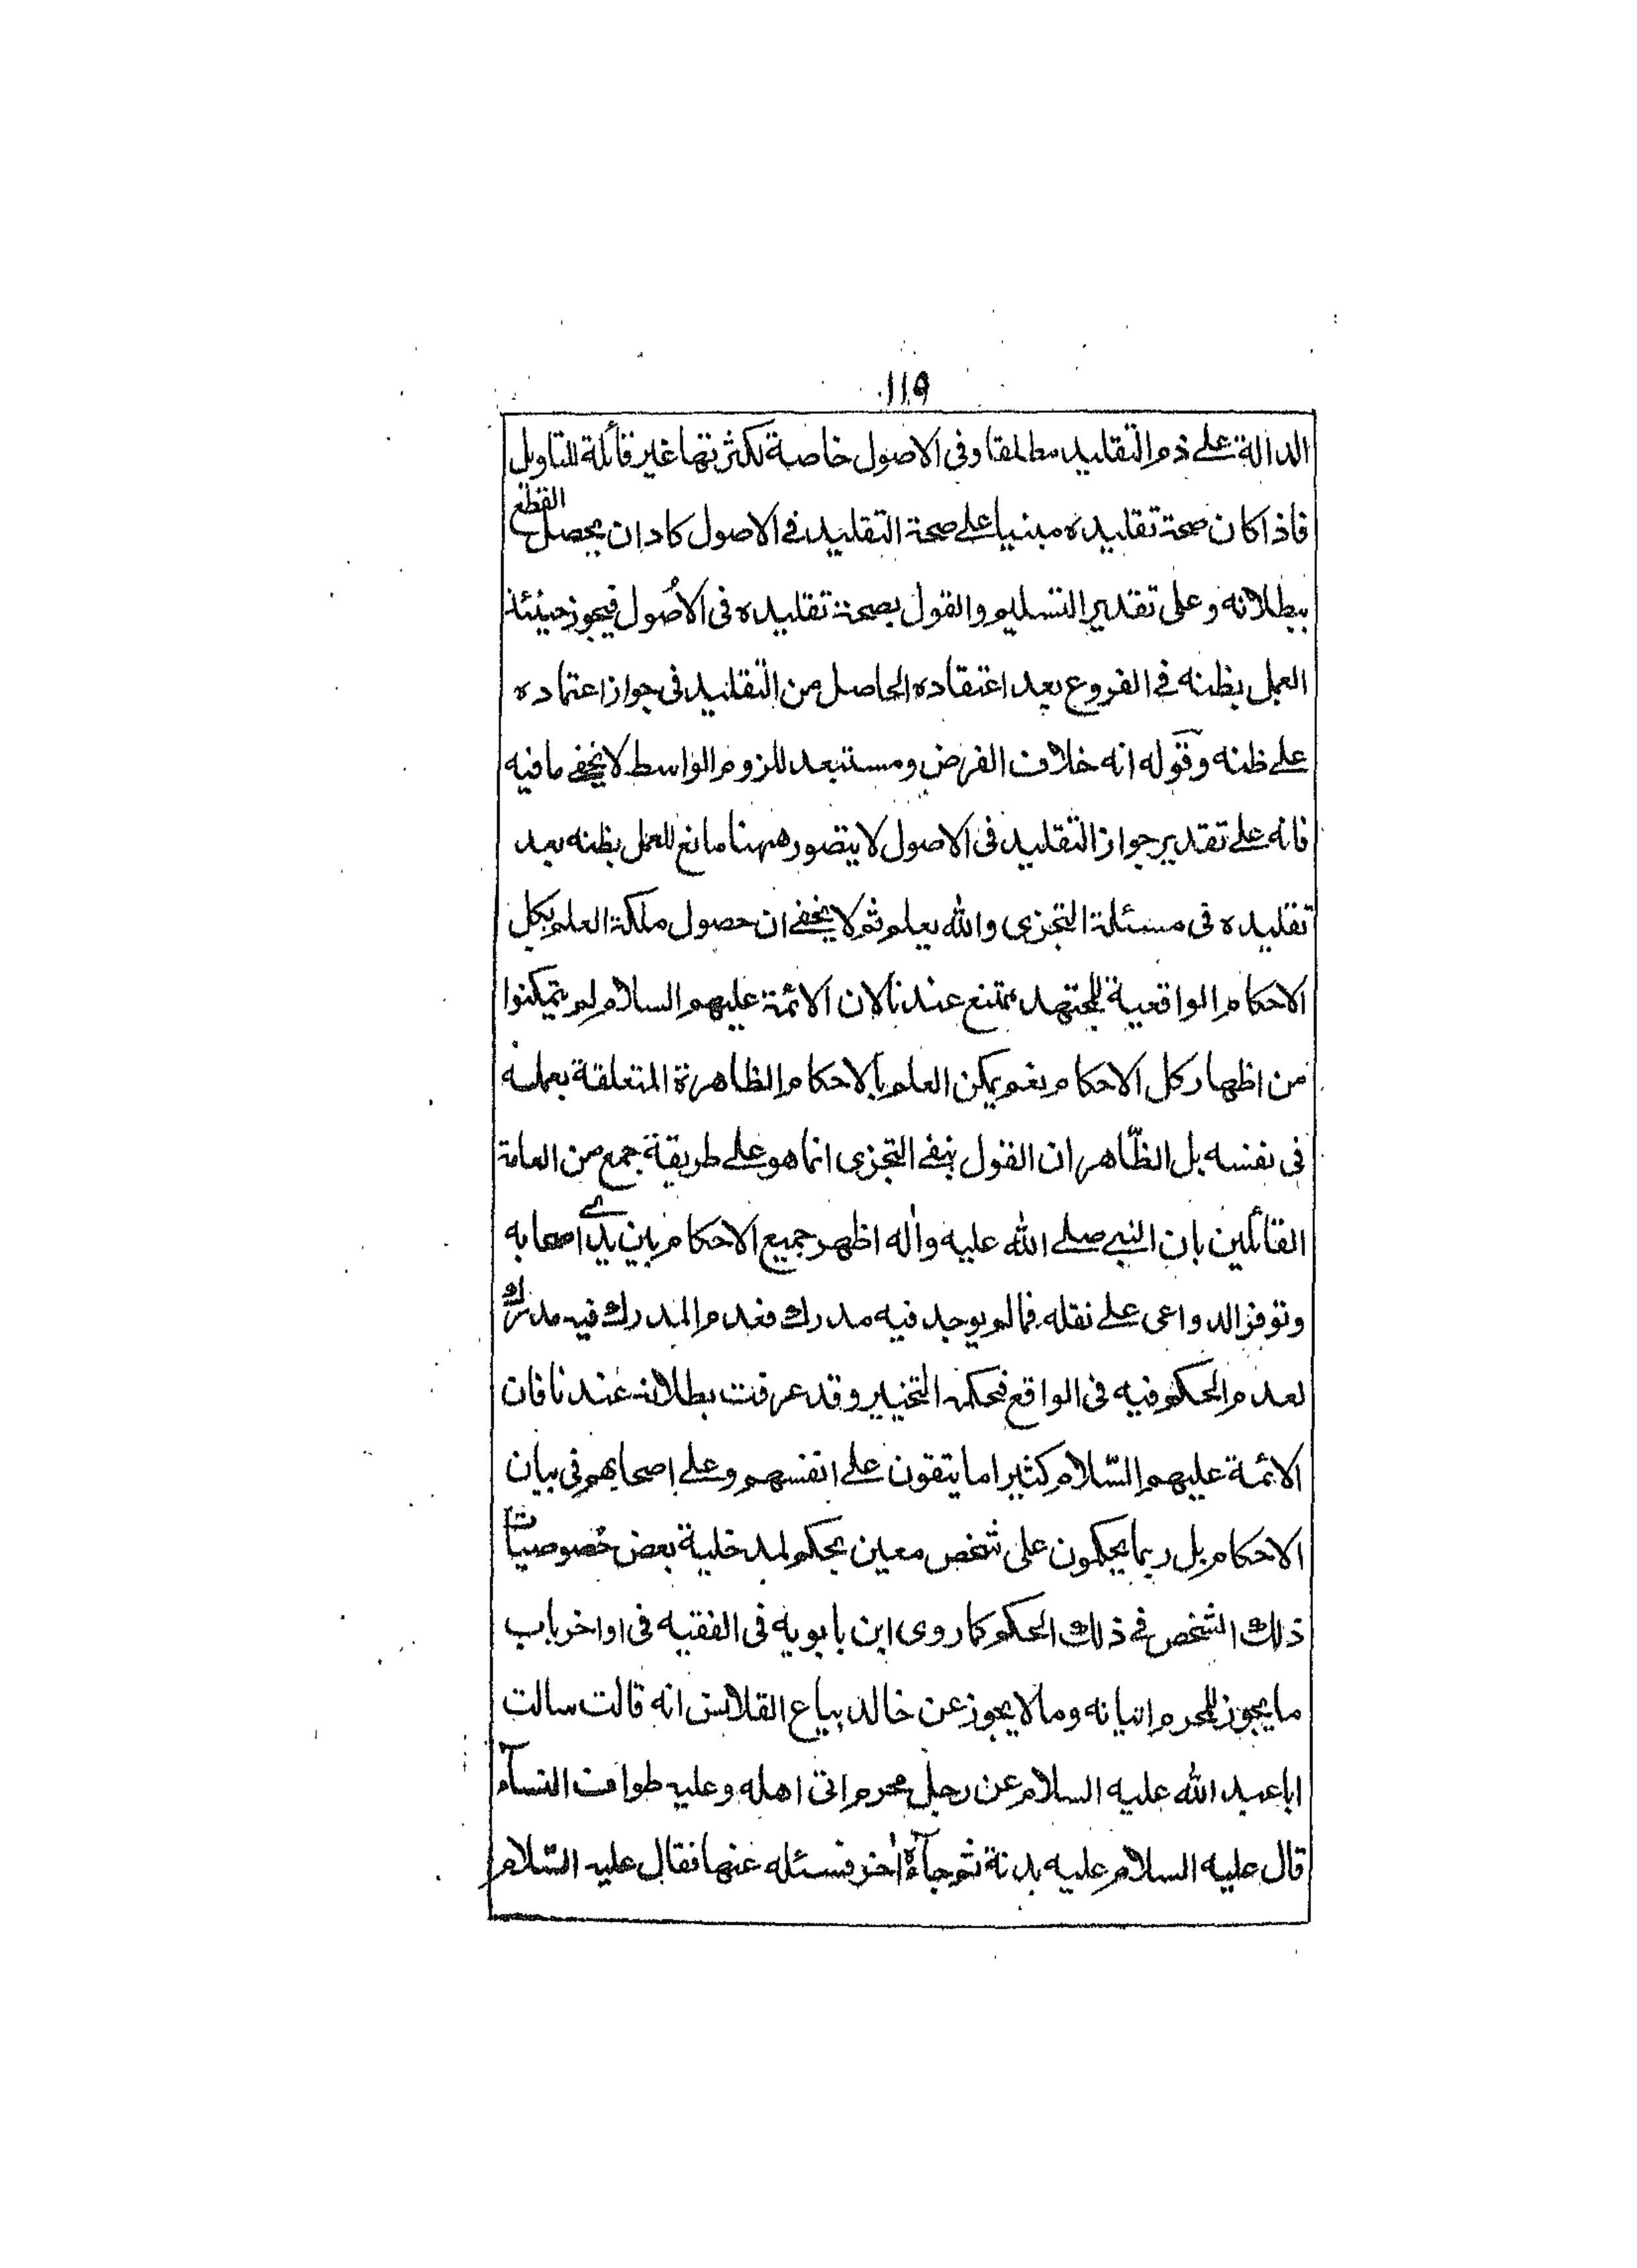 ١١٩
الدالة على ذم التقليد مطلقا وفى الاصول خاصة لكثرتها غير قابلة للتاويل
فاذا كان صحة تقليده مبنيا على صحة التقليد فى الاصول كاد ان يحصل القطع
ببطلانه وعلى تقدير التسليم والقول بصحة تقليده فى الاُصول فيجوز حينئذ
العمل بظنه فى الفروع بعد اعتقاده الحاصل من التقليد فى جواز اعتماده
على ظنه وقوله انه خلاف الفرض ومستبعد للزوم الواسط لا يخفى ما فيه
فانه على تقدير جواز التقليد فى الاصول لا يتصور ههنا مانع للعمل بظنه بعد
تقليده فى مسئلة التجزى والله يعلم ثم لا يخفى ان حصول ملكة العلم بكل
الاحكام الواقعية للمجتهد ممتنع عندنا لان الائمة عليهم السلام لم يتمكنوا
من اظهار كل الاحكام نعم يمكن العلم بالاحكام الظاهرة المتعلقة بعمله
فى نفسه بل الظّاهر ان القول بنفى التجزى انما هو على طريقة جمع من العامة
القائلين بان النبى صلى الله عليه واله اظهر جميع الاحكام بين يدى اصحابه
وتوفر الدواعى على نقله فما لم يوجد فيه مدرك فعدم المدرك فيه مدرك
لعدم الحكم فيه فى الواقع فحكمه التخيير وقد عرفت بطلانه عندنا فان
الائمة عليهم السّلام كثيرا ما يتقون على انفسهم وعلى اصحابهم فى بيان
الاحكام بل ربما يحكمون على شخص معين بحكم لمدخلية بعض خصوصيات
ذلك الشخص فى ذلك الحكم كما روى ابن بابويه فى الفقيه فى اواخر باب
ما يجوز للمحرم اتيانه وما لا يجوز عن خالد بياع القلانس انه قالت سالت
ابا عبد الله عليه السلام عن رجل محرم اتى اهله وعليه طواف النسآء
قال عليه السلام عليه بدنة ثم جآءه اٰخر فسئله عنها فقال عليه السّلام